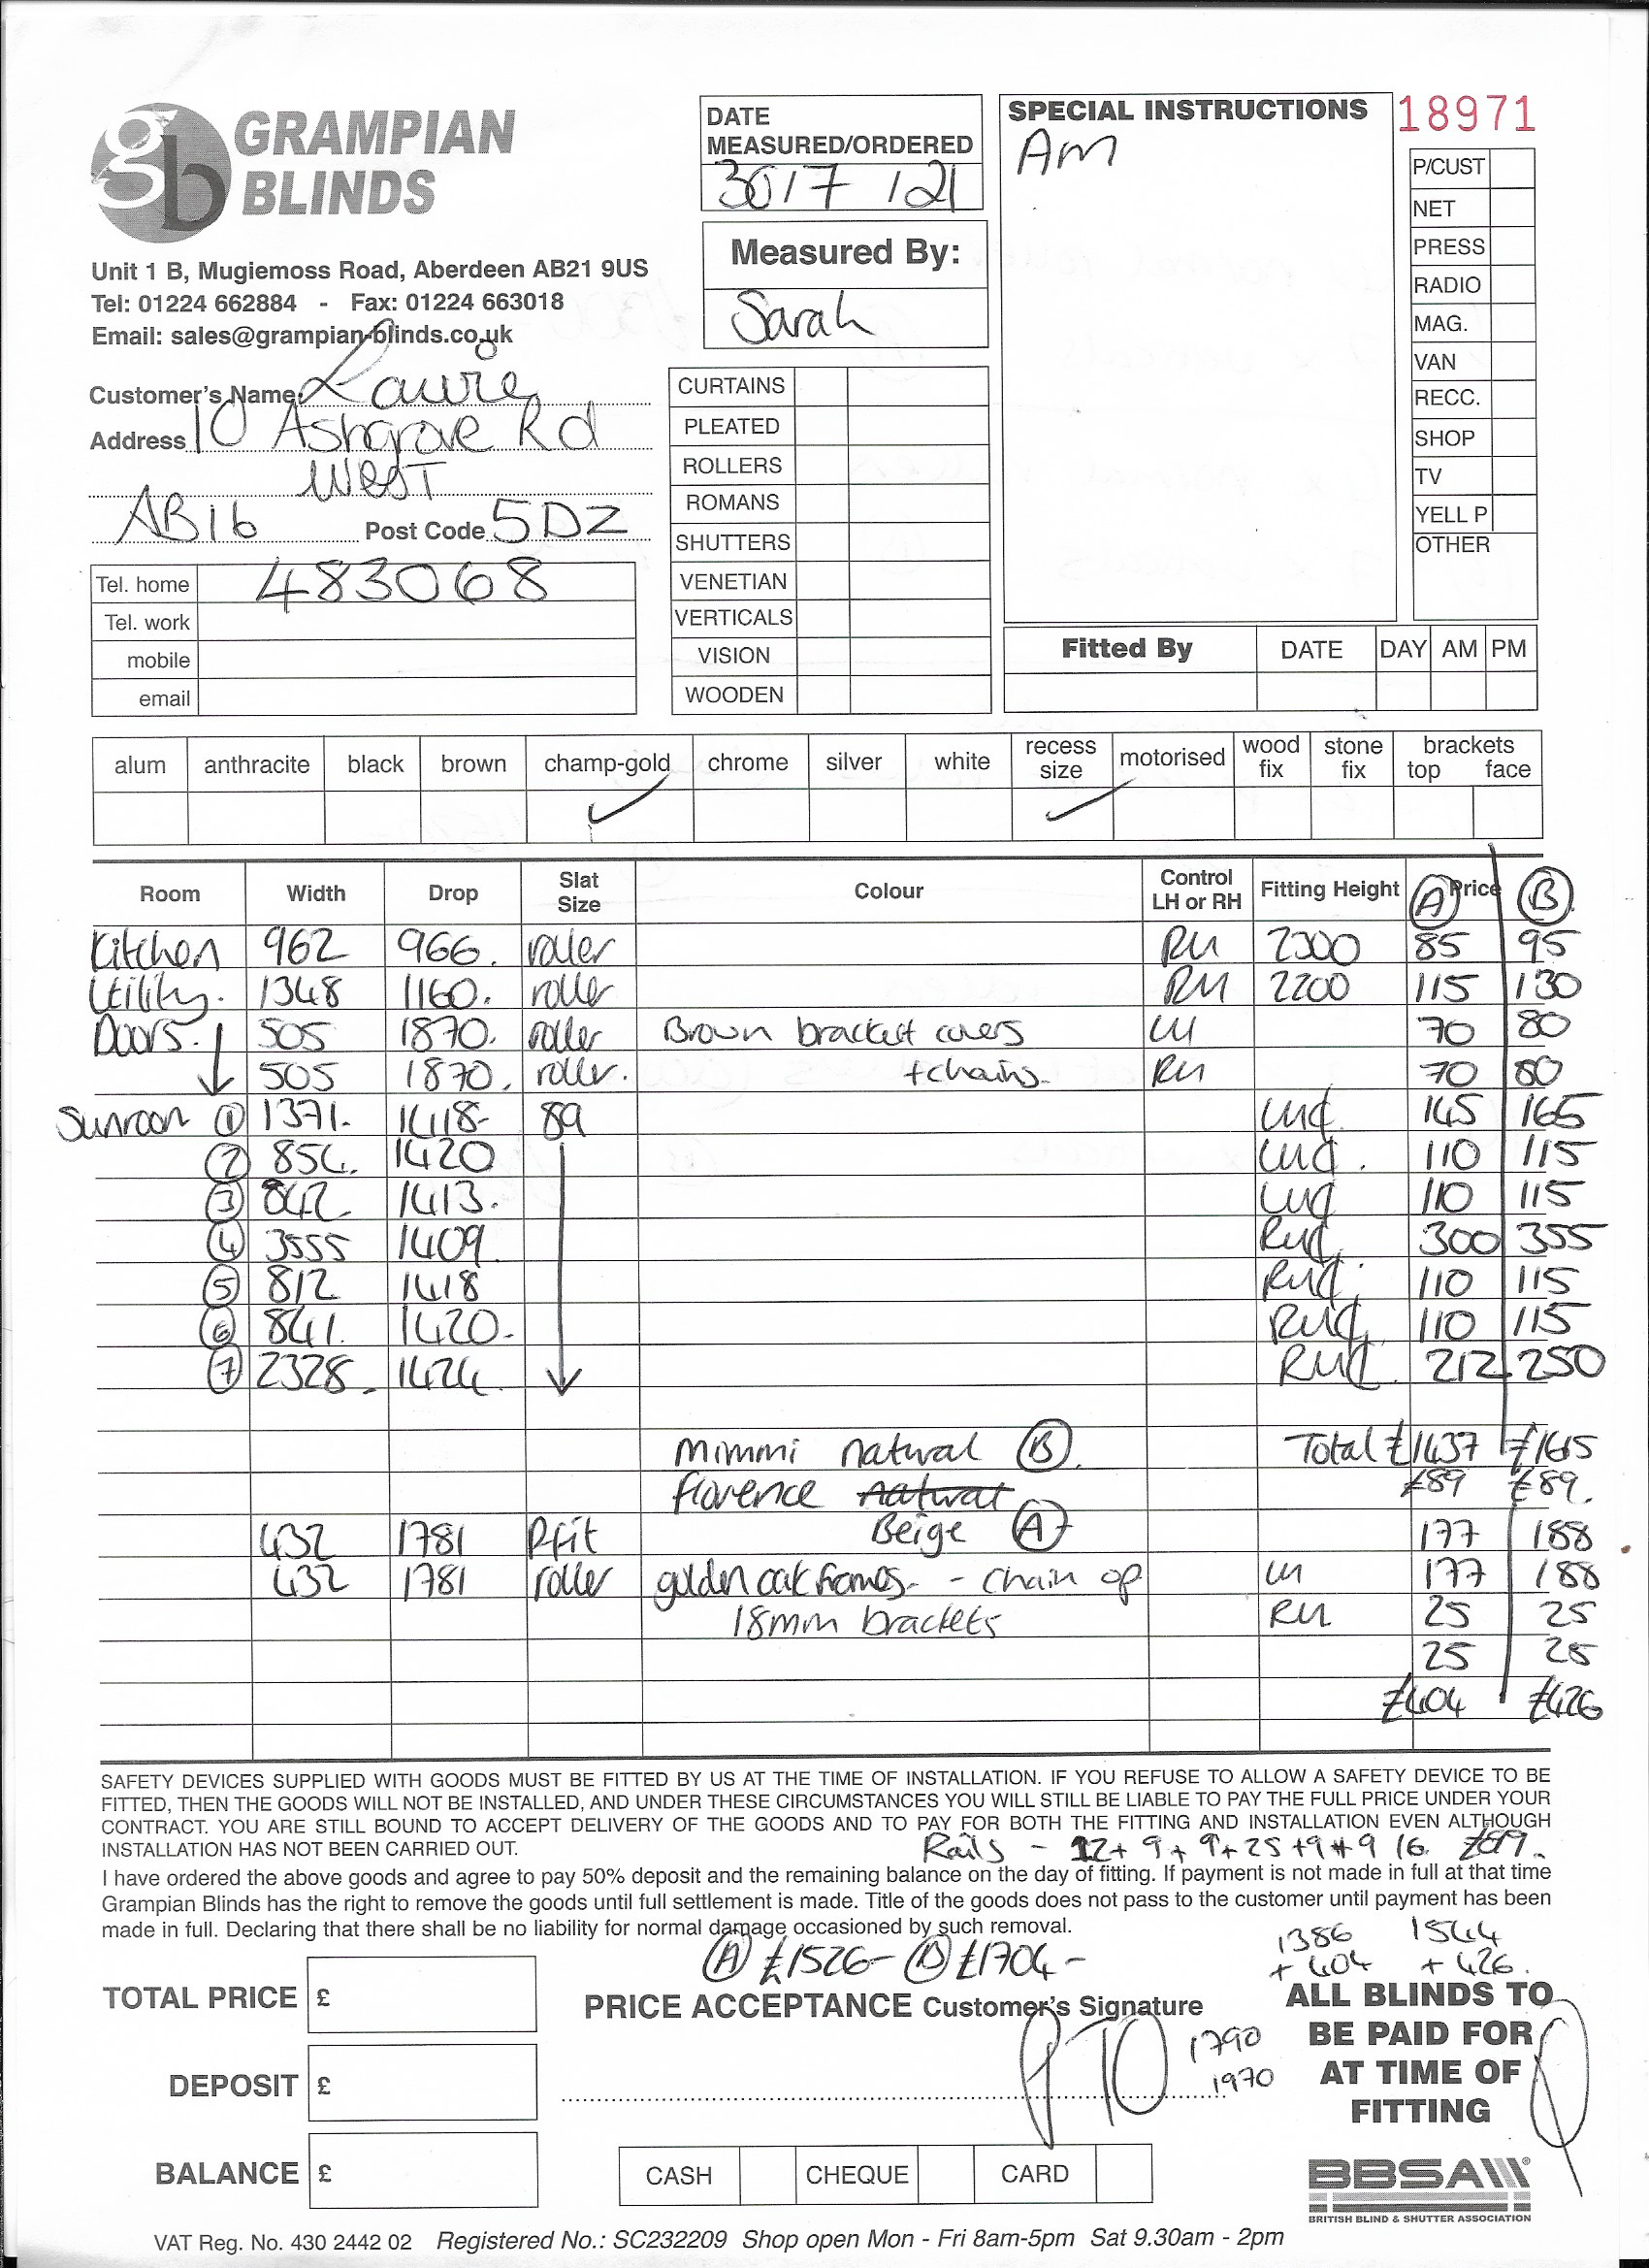 GRAMPIAN
BLINDS
Unit 1 B, Mugiemoss Road, Aberdeen AB21 9US
Tel: 01224 662884 - Fax: 01224 663018
Email: sales@grampian-blinds.co.uk
Customer's Name: Lawrie
Address 10 Ashgrove Rd
West
AB16 Post Code 5DZ
Tel. home 483068
Tel. work
mobile
email
DATE
MEASURED/ORDERED
30/7/21
Measured By:
Sarah
CURTAINS
PLEATED
ROLLERS
ROMANS
SHUTTERS
VENETIAN
VERTICALS
VISION
WOODEN
SPECIAL INSTRUCTIONS
Am
18971
P/CUST
NET
PRESS
RADIO
MAG.
VAN
RECC.
SHOP
TV
YELL P
OTHER
Fitted By DATE DAY AM PM
alum anthracite black brown champ-gold chrome silver white recess size motorised wood fix stone fix brackets top face
✓ ✓
Room Width Drop Slat Size Colour Control LH or RH Fitting Height (A) Price (B)
Kitchen 962 966. roller RH 2300 85 95
Utility. 1348 1160. roller RH 2200 115 130
Doors. 505 1870. roller Brown bracket covers LH 70 80
505 1870. roller. + chains RH 70 80
Sunroom 1 1371. 1418- 89 145 165
2 854. 1420 110 115
3 842 1413. 110 115
4 3555 1409 300 355
5 812 1418 110 115
6 841. 1420- 110 115
7 2328. 1424 212 250
Mimmi natural (B). Total £1437 £1615
Florence natural £89 £89.
432 1781 Pfit Beige (A) 177 188
432 1781 roller golden oak frames - chain op LH 177 188
18mm brackets RH 25 25
25 25
£404 £426
SAFETY DEVICES SUPPLIED WITH GOODS MUST BE FITTED BY US AT THE TIME OF INSTALLATION. IF YOU REFUSE TO ALLOW A SAFETY DEVICE TO BE
FITTED, THEN THE GOODS WILL NOT BE INSTALLED, AND UNDER THESE CIRCUMSTANCES YOU WILL STILL BE LIABLE TO PAY THE FULL PRICE UNDER YOUR
CONTRACT. YOU ARE STILL BOUND TO ACCEPT DELIVERY OF THE GOODS AND TO PAY FOR BOTH THE FITTING AND INSTALLATION EVEN ALTHOUGH
INSTALLATION HAS NOT BEEN CARRIED OUT.
Rails - 12+9+9+25+9+9 16 £89.
I have ordered the above goods and agree to pay 50% deposit and the remaining balance on the day of fitting. If payment is not made in full at that time
Grampian Blinds has the right to remove the goods until full settlement is made. Title of the goods does not pass to the customer until payment has been
made in full. Declaring that there shall be no liability for normal damage occasioned by such removal.
(A) £1526- (B) £1704-
1386 1544
+ 404 + 426.
TOTAL PRICE £
PRICE ACCEPTANCE Customer's Signature
PTO
1790
1970
DEPOSIT £
BALANCE £
CASH CHEQUE CARD
ALL BLINDS TO
BE PAID FOR
AT TIME OF
FITTING
BBSA
BRITISH BLIND & SHUTTER ASSOCIATION
VAT Reg. No. 430 2442 02 Registered No.: SC232209 Shop open Mon - Fri 8am-5pm Sat 9.30am - 2pm